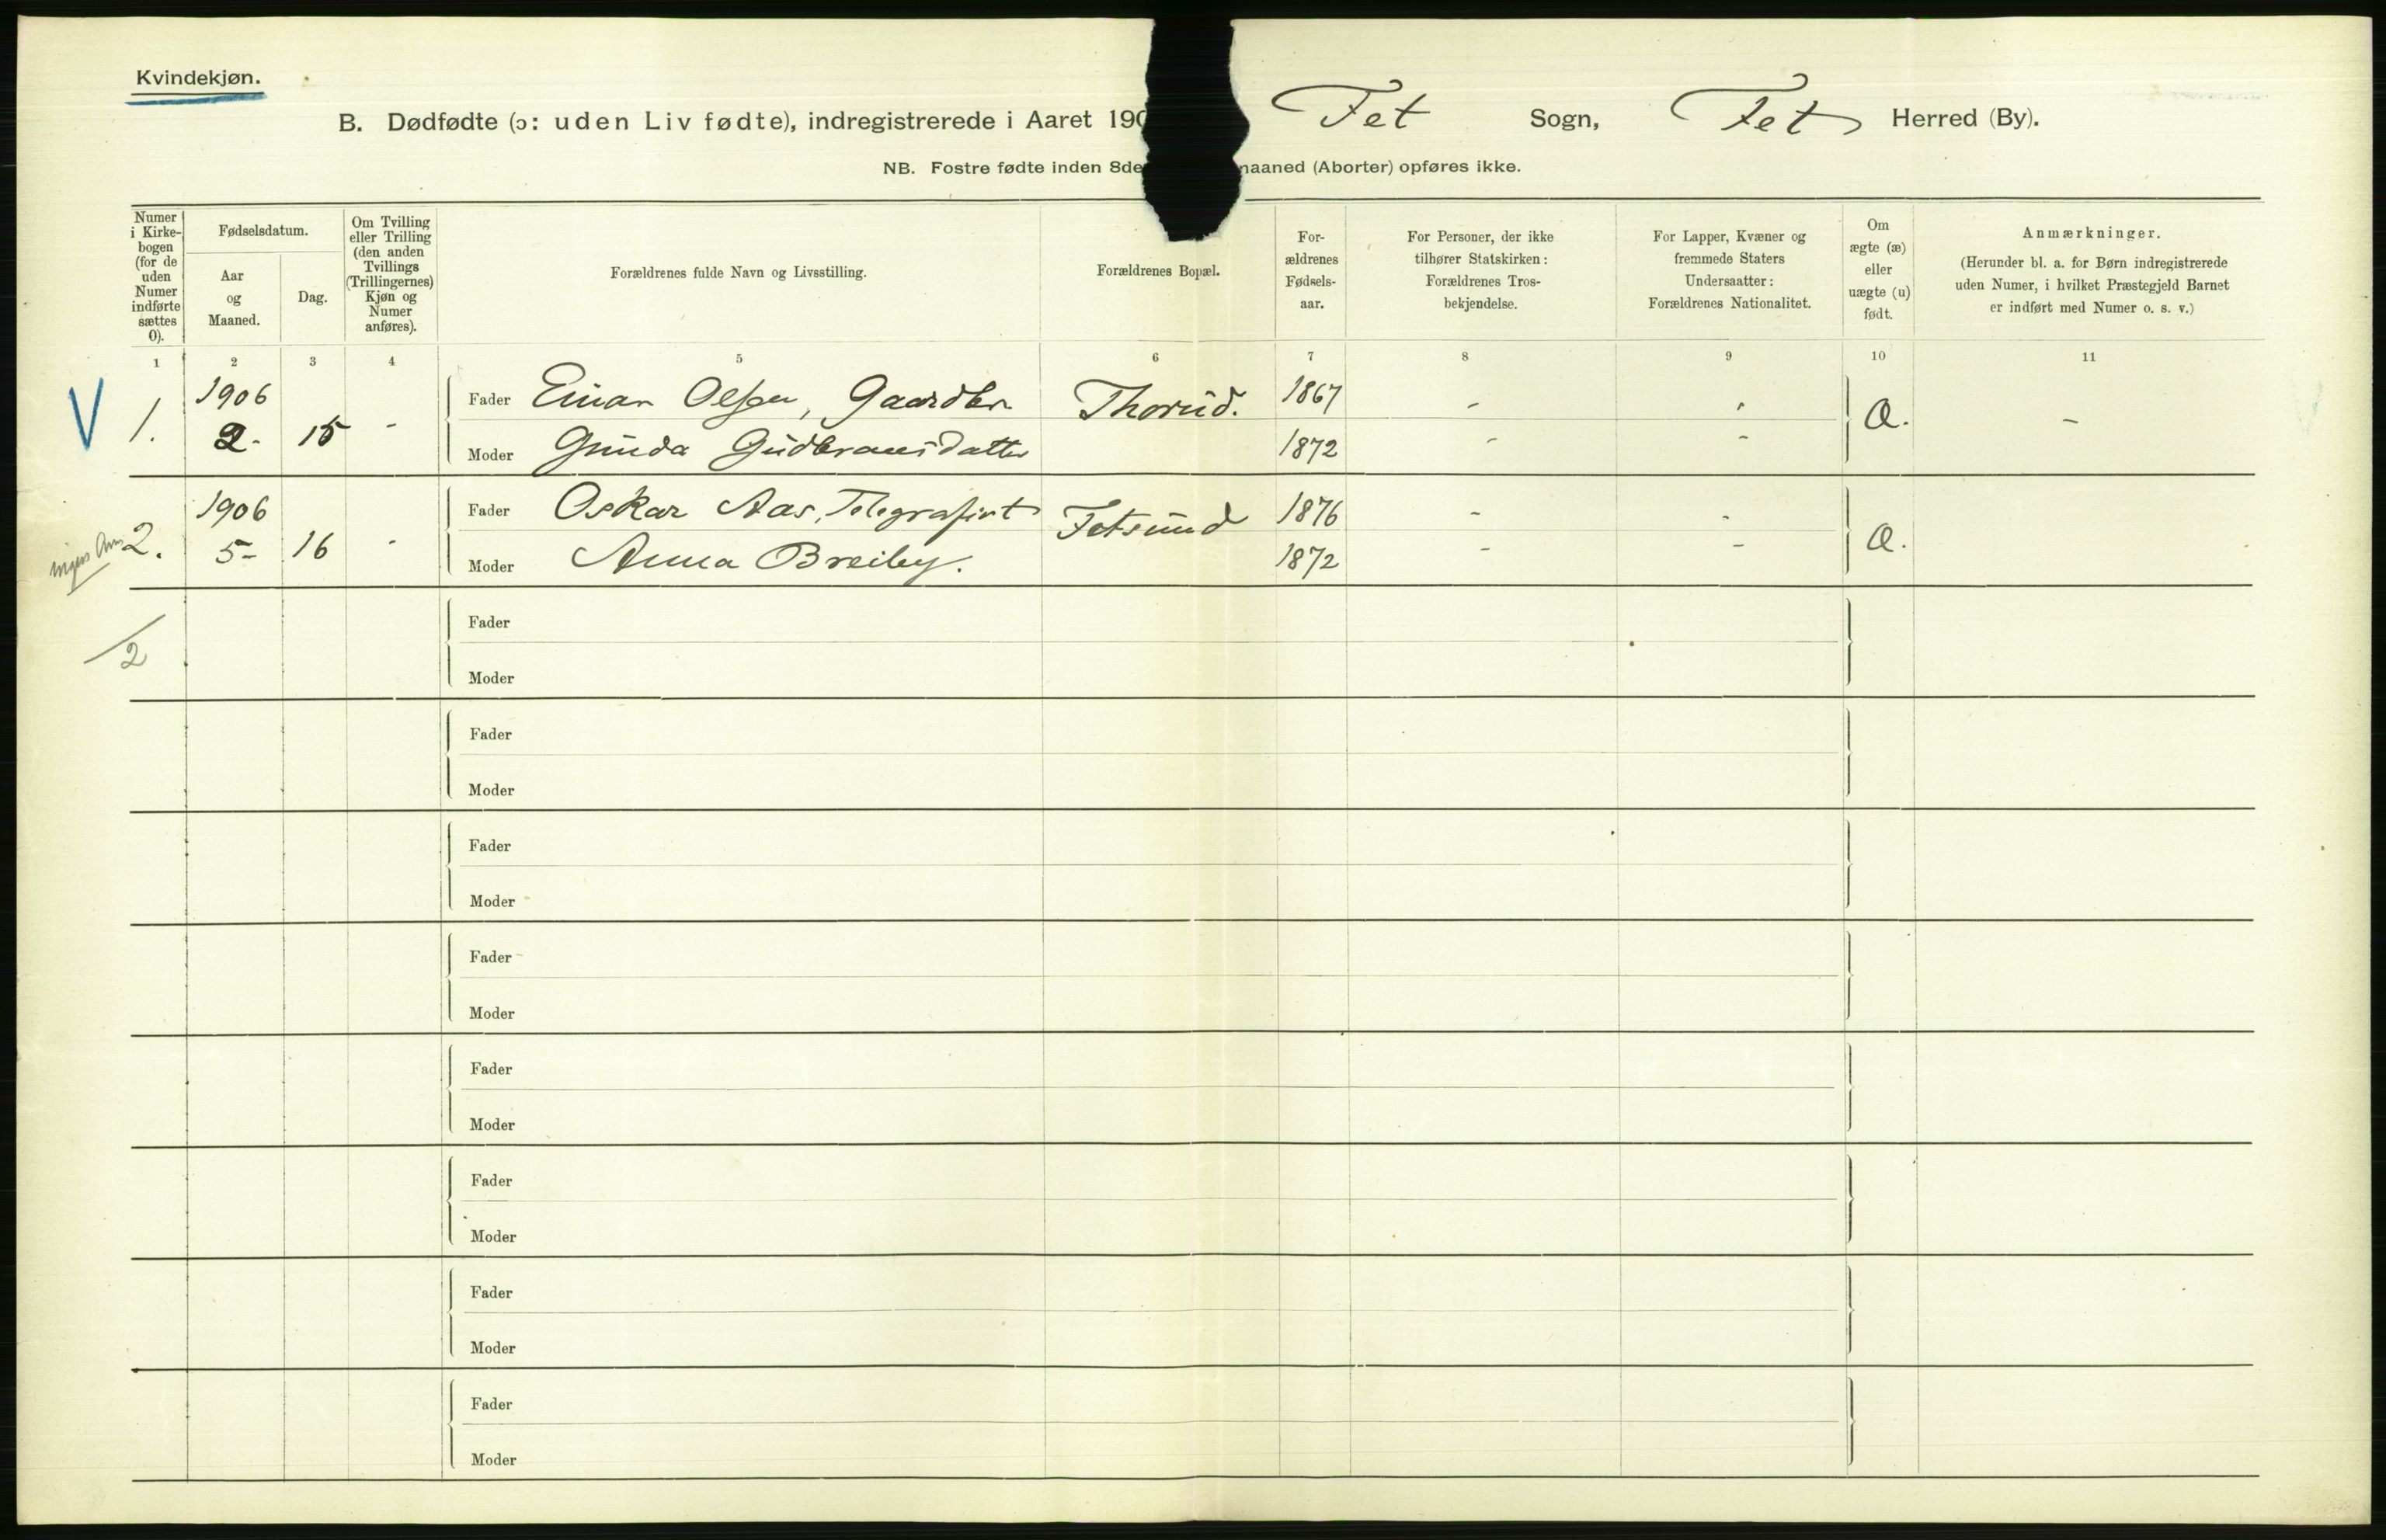 Kvindekjøn.
B. Dødfødte (ɔ: uden Liv fødte), indregistrerede i Aaret 190 Fet Sogn, Fet Herred (By).
NB. Fostre fødte inden 8de maaned (Aborter) opføres ikke.
Numer i Kirke-
bogen
(for de
uden
Numer
indførte
sættes
0).
Fødselsdatum.
Aar
og
Maaned.
Dag.
Om Tvilling
eller Trilling
(den anden
Tvillings
(Trillingernes)
Kjøn og
Numer
anføres).
Forældrenes fulde Navn og Livsstilling.
Forældrenes Bopæl.
For-
ældrenes
Fødsels-
aar.
For Personer, der ikke
tilhører Statskirken:
Forældrenes Tros-
bekjendelse.
For Lapper, Kvæner og
fremmede Staters
Undersaatter:
Forældrenes Nationalitet.
Om
ægte (æ)
eller
uægte (u)
født.
Anmærkninger.
(Herunder bl. a. for Børn indregistrerede
uden Numer, i hvilket Præstegjeld Barnet
er indført med Numer o. s. v.)
1 2 3 4 5 6 7 8 9 10 11
V 1. 1906 2- 15 - Fader Einar Olsen, Gaardbr Thorud. 1867 - - Æ. -
Moder Gunda Gudbransdatter 1872 - -
2. 1906 5- 16 - Fader Oskar Aas, Telegrafist Fetsund 1876 - - Æ.
Moder Anna Breiby. 1872 - -
2
Fader
Moder
Fader
Moder
Fader
Moder
Fader
Moder
Fader
Moder
Fader
Moder
Fader
Moder
Fader
Moder